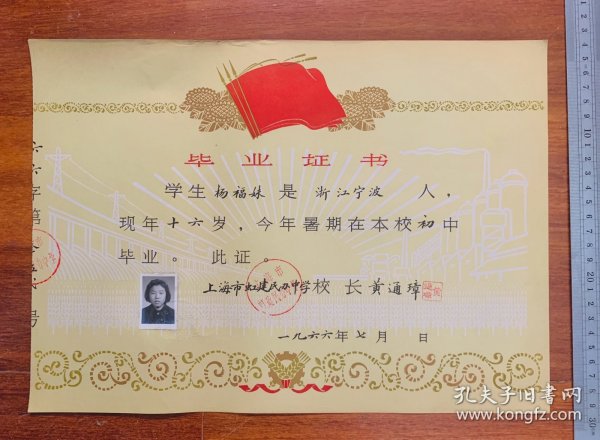 毕业证书
学生杨福妹是浙江宁波人，
现年十六岁，今年暑期在本校初中
毕业。此证。
上海市虹建民办中学校长黄通璋
一九六六年七月 日
六六字第 号
孔夫子旧书网
www.kongfz.com